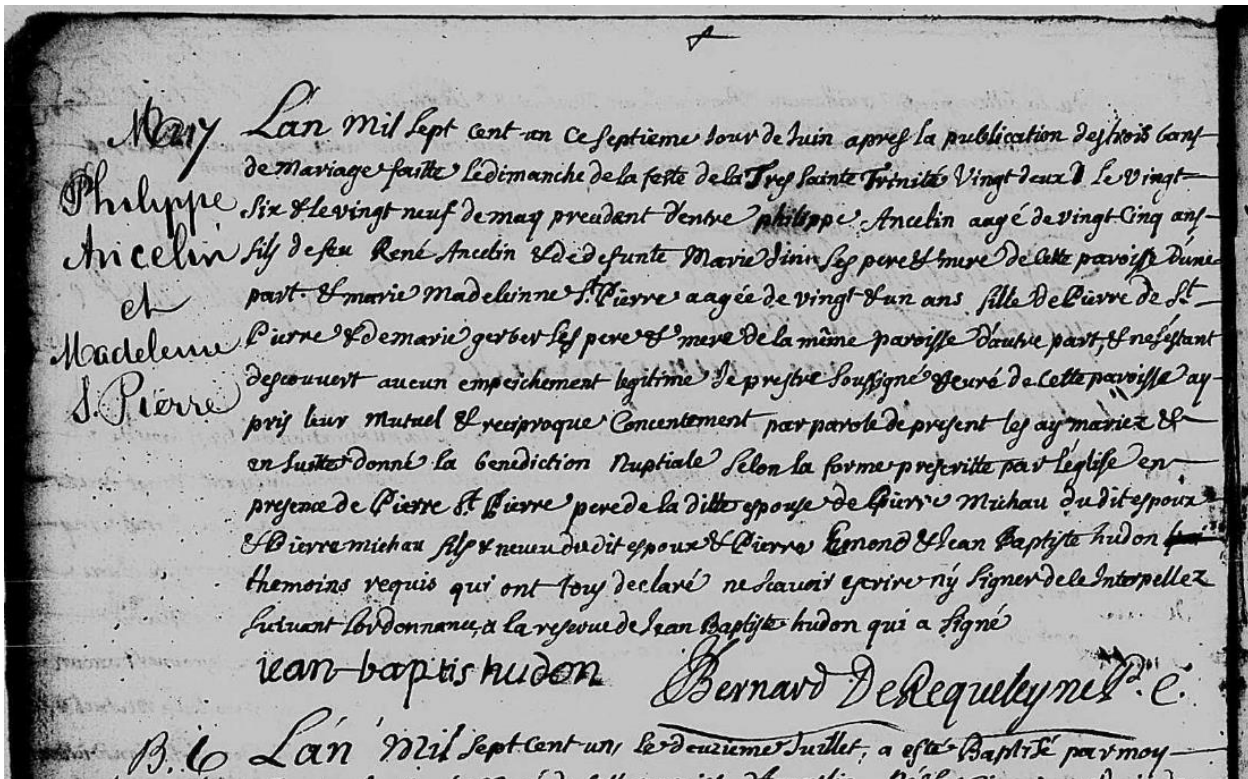 Mary
Philippe
Ancelin
et
Madeleine
S. Pierre
Lán Mil Sept Cent-un Ce Septieme Jour de Juin apres la publication des trois bans
de Mariage faitte Le dimanche de la feste de la Tres Sainte Trinité Vingt deux Le Vingt
Six & le vingt neuf de may d'entre philippe Ancelin aagé de vingt Cinq ans
fils de feu René Ancelin & de defunte Marie ses pere & mere de Cette paroisse d'une
part. & marie Madeleinne St. Pierre aagée de vingt & un ans fille de Pierre de St
Pierre & de marie gerber ses pere & mere de la même paroisse d'autre part, & ne s'estant
descouvert aucun empeschement legitime Je prestre Soussigné & Curé de Cette paroisse ay
pris leur Mutuel & reciproque Concentement par parole de present les ay mariez &
en suitte donné la benediction Nuptiale Selon la forme prescritte par l'église en
presence de Pierre St. Pierre pere de la ditte espouse de Pierre Michau du dit espoux
& Pierre michau fils & neveu du dit espoux & Pierre Emond & Jean Baptiste hudon
themoins requis qui ont tous declaré ne scavoir escrire ny Signer de le Interpellez
Suivant Lordonnance, a la reserve de Jean Baptiste hudon qui a Signé
iean-baptis hudon Bernard De Requeleyne P. C.
B. 6 Lán Mil Sept Cent un, Le deuzieme Juillet, a esté Baptisé par moy